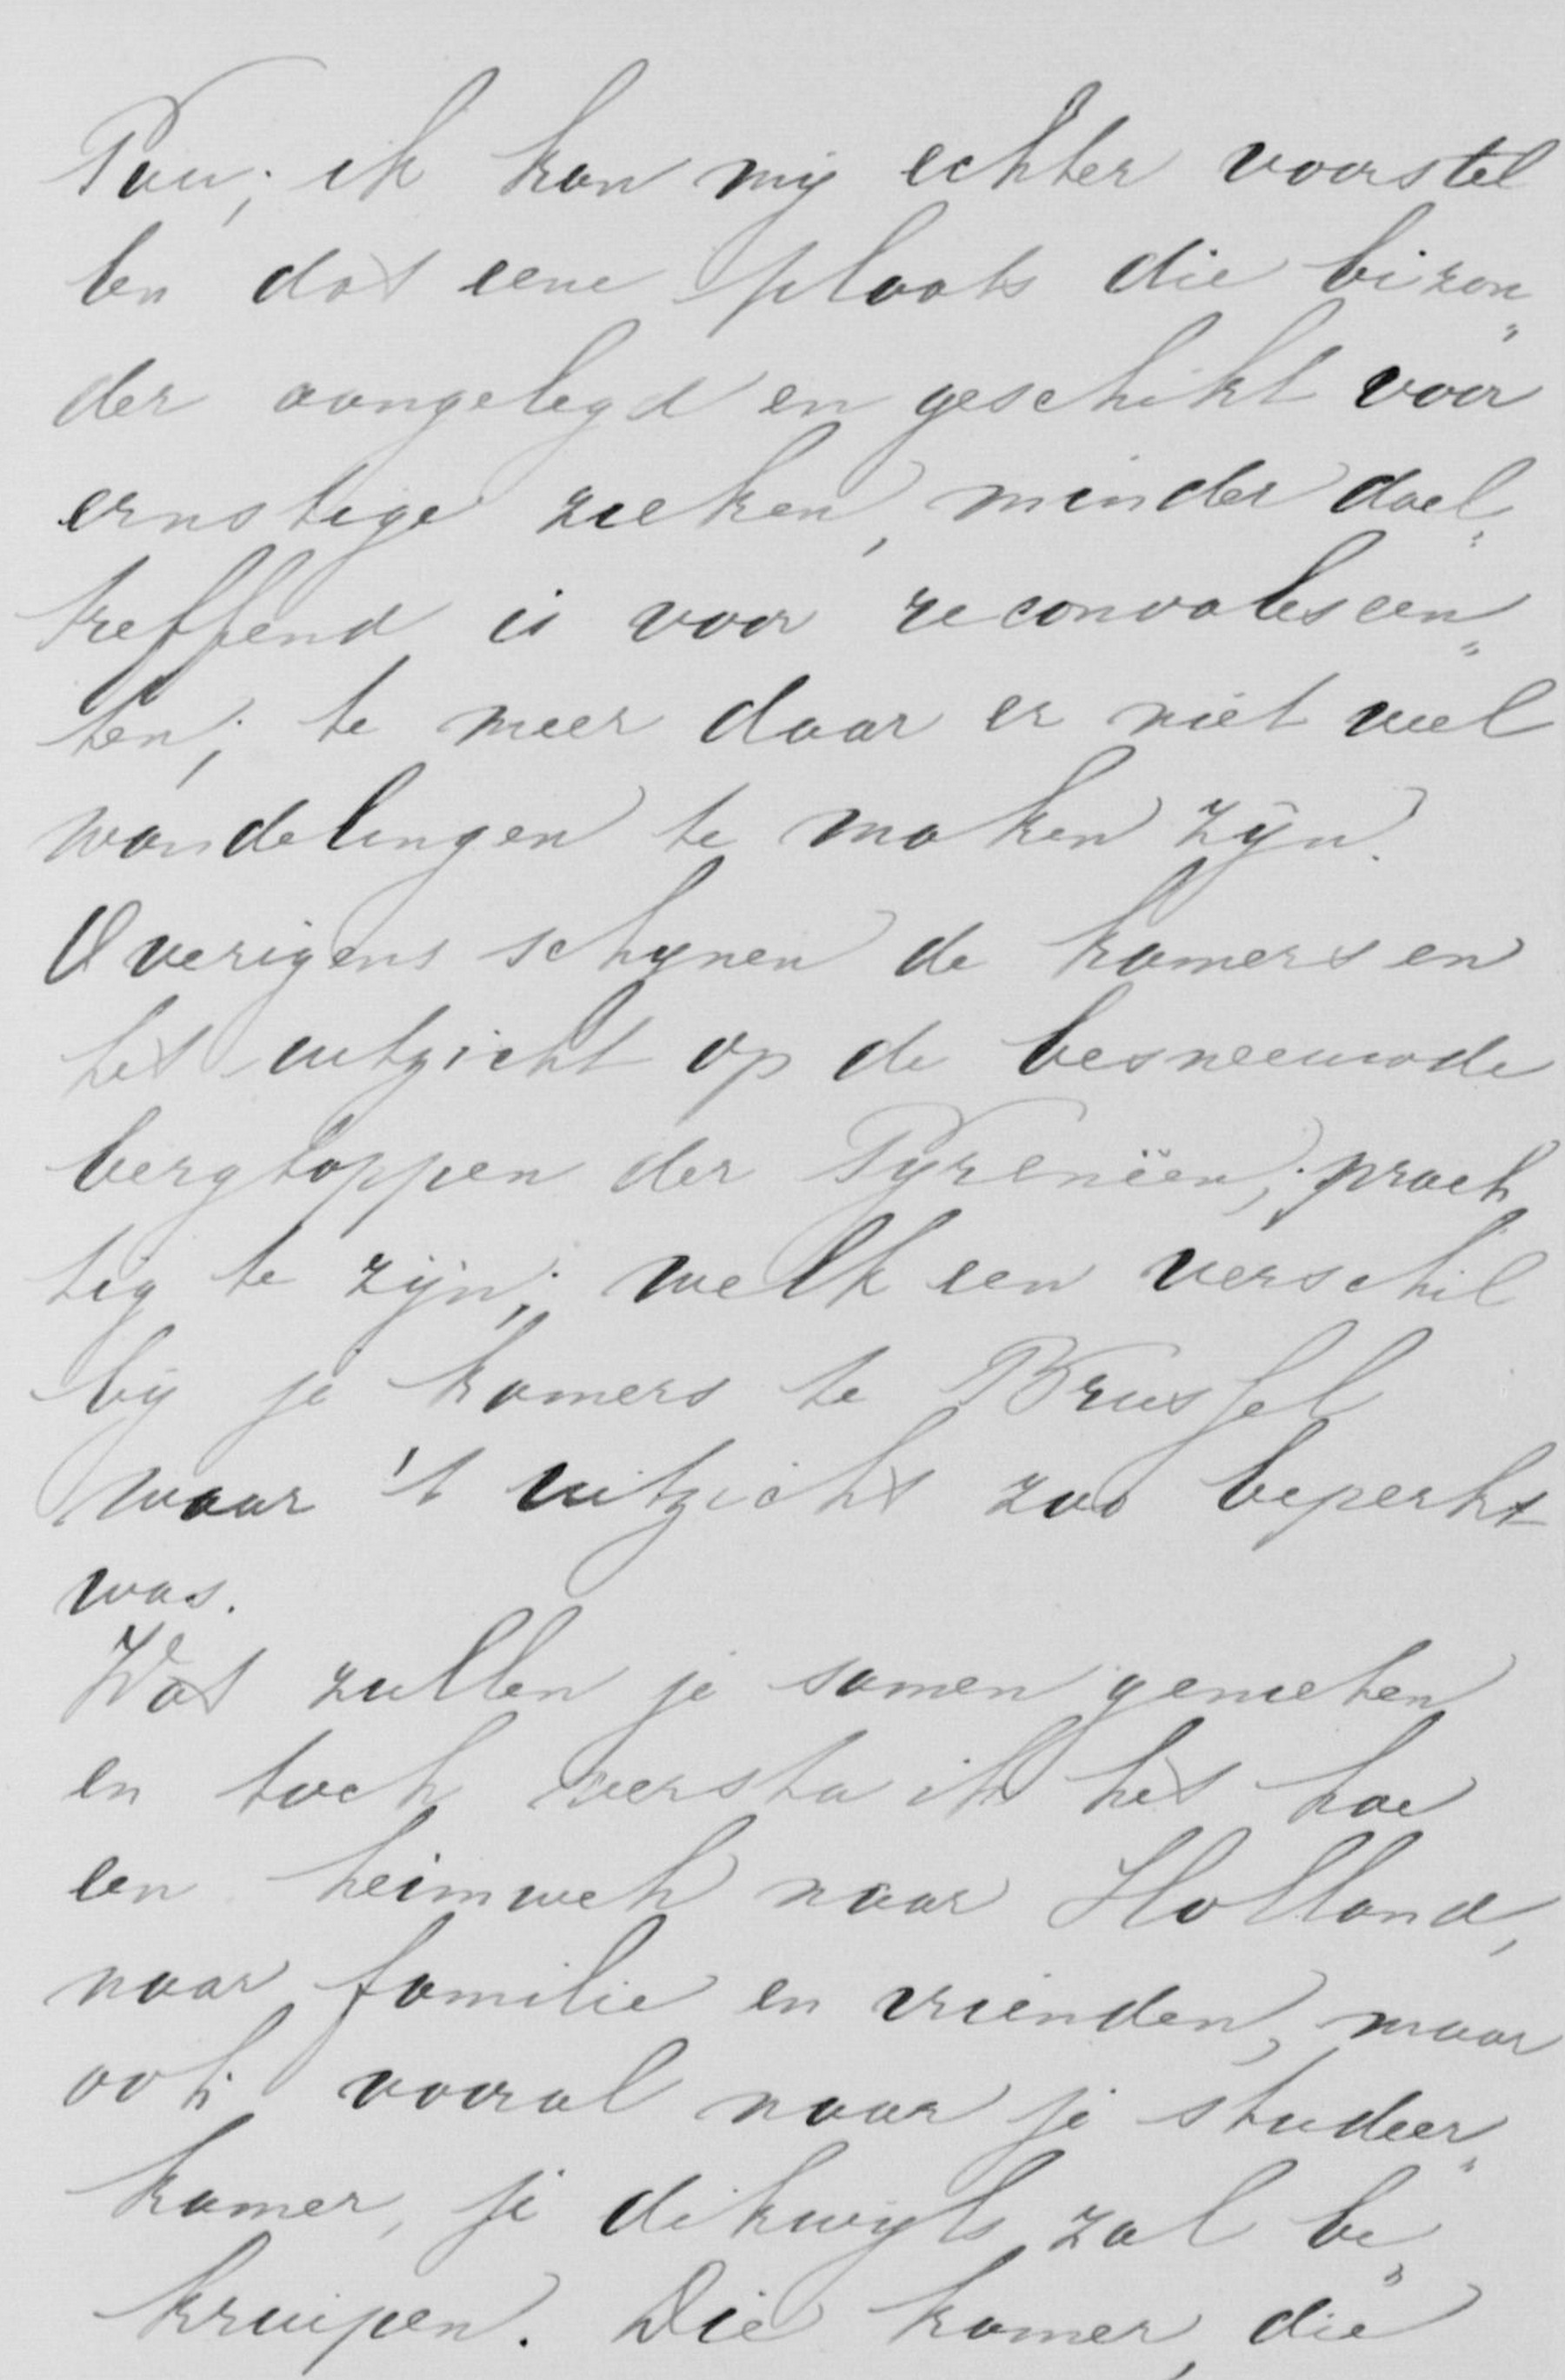 Pau; ik kan mij echter voorstel
len dat eene plaats die bizon„
der aangelegd en geschikt voor
ernstige zieken, minder doel„
treffend is voor reconvalescen„
ten; te meer daar er niet veel
wandelingen te maken zijn.
Overigens schijnen de kamers en
het uitzicht op de besneeuwde
bergtoppen der Pyreneën, prach
tig te zijn; welk een verschil
bij je kamers te Brussel
waar 't uitzicht zoo beperkt
was.
Wat zullen je samen genieten
en toch versta ik het hoe
een heimweh naar Holland,
naar familie en vrienden, maar
ook vooral naar je studeer„
kamer, je dikwijls zal be„
kruipen. Die kamer, die